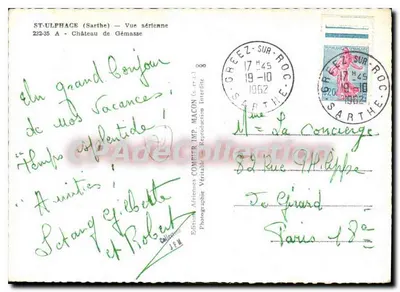 ST-ULPHACE (Sarthe) — Vue aérienne
2/2-35 A - Château de Gémasse
Un grand Bonjour
de nos Vacances !
Temps splendide !
Amitiés !
Gilberte
et Robert
Editions Aériennes COMBIER IMP. MACON
Photographie Véritable - Reproduction Interdite
GREEZ-SUR-ROC
17H45
19-10
1962
SARTHE
GREEZ-SUR-ROC
17H45
19-10
1962
SARTHE
Mme La Concierge
82 Rue Philippe
de Girard
Paris 18e